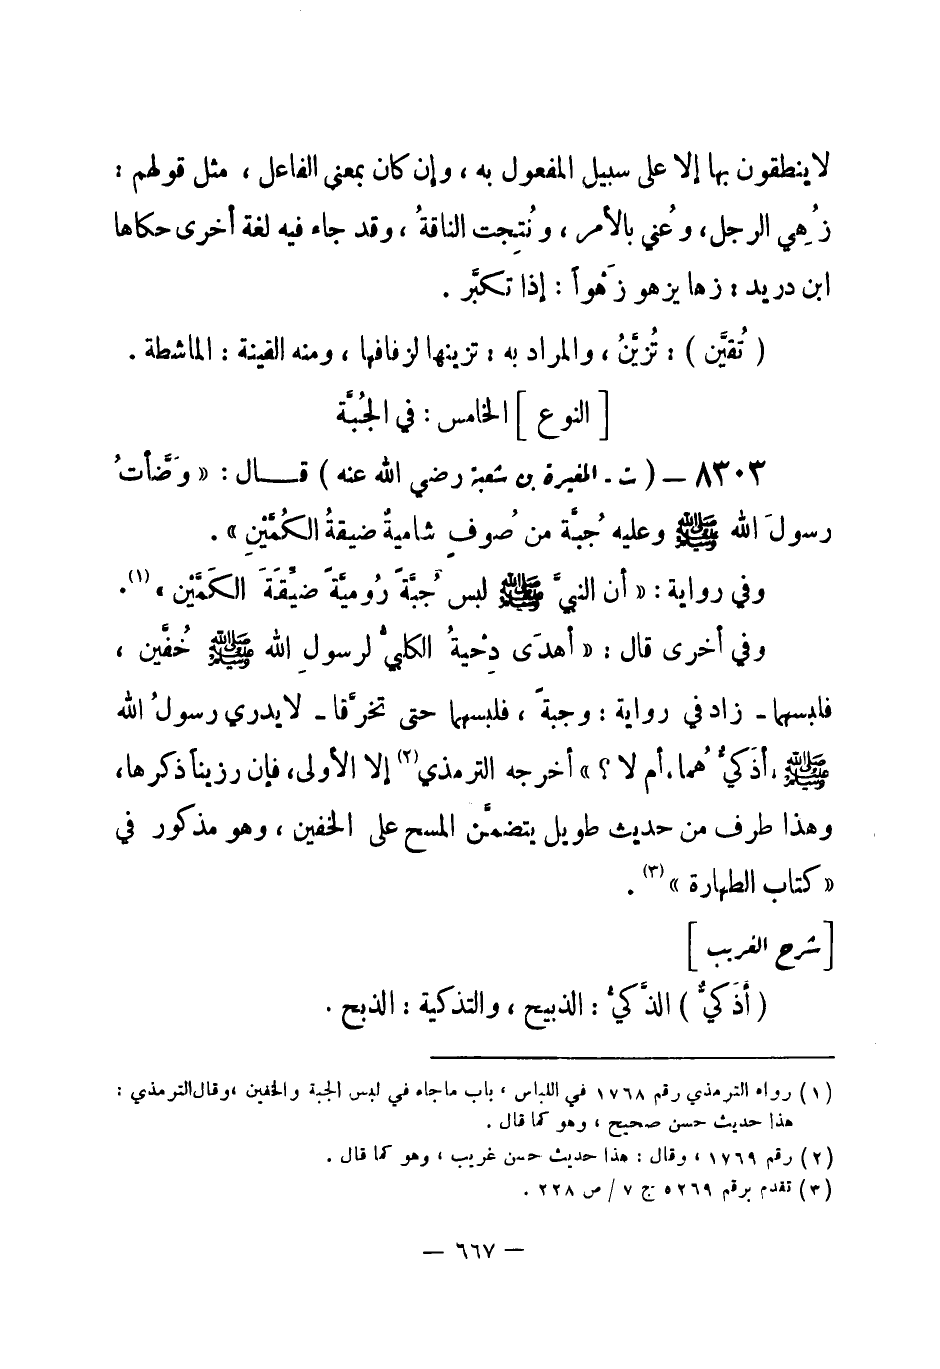 لا ينطقون بها إلا على سبيل المفعول به ، وإن كان بمعنى الفاعل ، مثل قولهم :
زُهِي الرجل، وعُني بالأمر ، ونُتِجت الناقةُ ، وقد جاء فيه لغة أخرى حكاها
ابن دريد : زها يزهو زَهْواً : إذا تكبَّر .
( تُقيَّن ) : تُزيَّنُ ، والمراد به : تزيينها لزفافها ، ومنه القينة : الماشطة .
[ النوع ] الخامس : في الجُبَّة
٨٣٠٣ – ( ت - المغيرة بن شعبة رضي الله عنه ) قال : « وَضَّأتُ
رسولَ الله ﷺ وعليه جُبَّة من صُوفٍ شاميةٌ ضيقةُ الكُمَّيْنِ » .
وفي رواية : « أن النبيَّ ﷺ لبس جُبَّةً رُوميَّةً ضيِّقَةَ الكمَّيْن » (١).
وفي أخرى قال : « أهدَى دِحْيةُ الكلبيُّ لرسولِ الله ﷺ خُفَّين ،
فلبسهما - زاد في رواية : وجبةً ، فلبسهما حتى تخرَّقا - لا يدري رسولُ الله
ﷺ ، أذَكيٌّ هُما ، أم لا ؟ » أخرجه الترمذي (٢) إلا الأولى، فإن رزيناً ذكرها،
وهذا طرف من حديث طويل يتضمَّن المسح على الخفين ، وهو مذكور في
« كتاب الطهارة » (٣) .
[ شرح الغريب ]
( أذَكيٌّ ) الذَّكيُّ : الذبيح ، والتذكية : الذبح .
(١) رواه الترمذي رقم ١٧٦٨ في اللباس ، باب ماجاء في لبس الجبة والخفين ،وقال الترمذي :
هذا حديث حسن صحيح ، وهو كما قال .
(٢) رقم ١٧٦٩ ، وقال : هذا حديث حسن غريب ، وهو كما قال .
(٣) تقدم برقم ٥٢٦٩ ج ٧ / ص ٢٢٨ .
– ٦٦٧ –